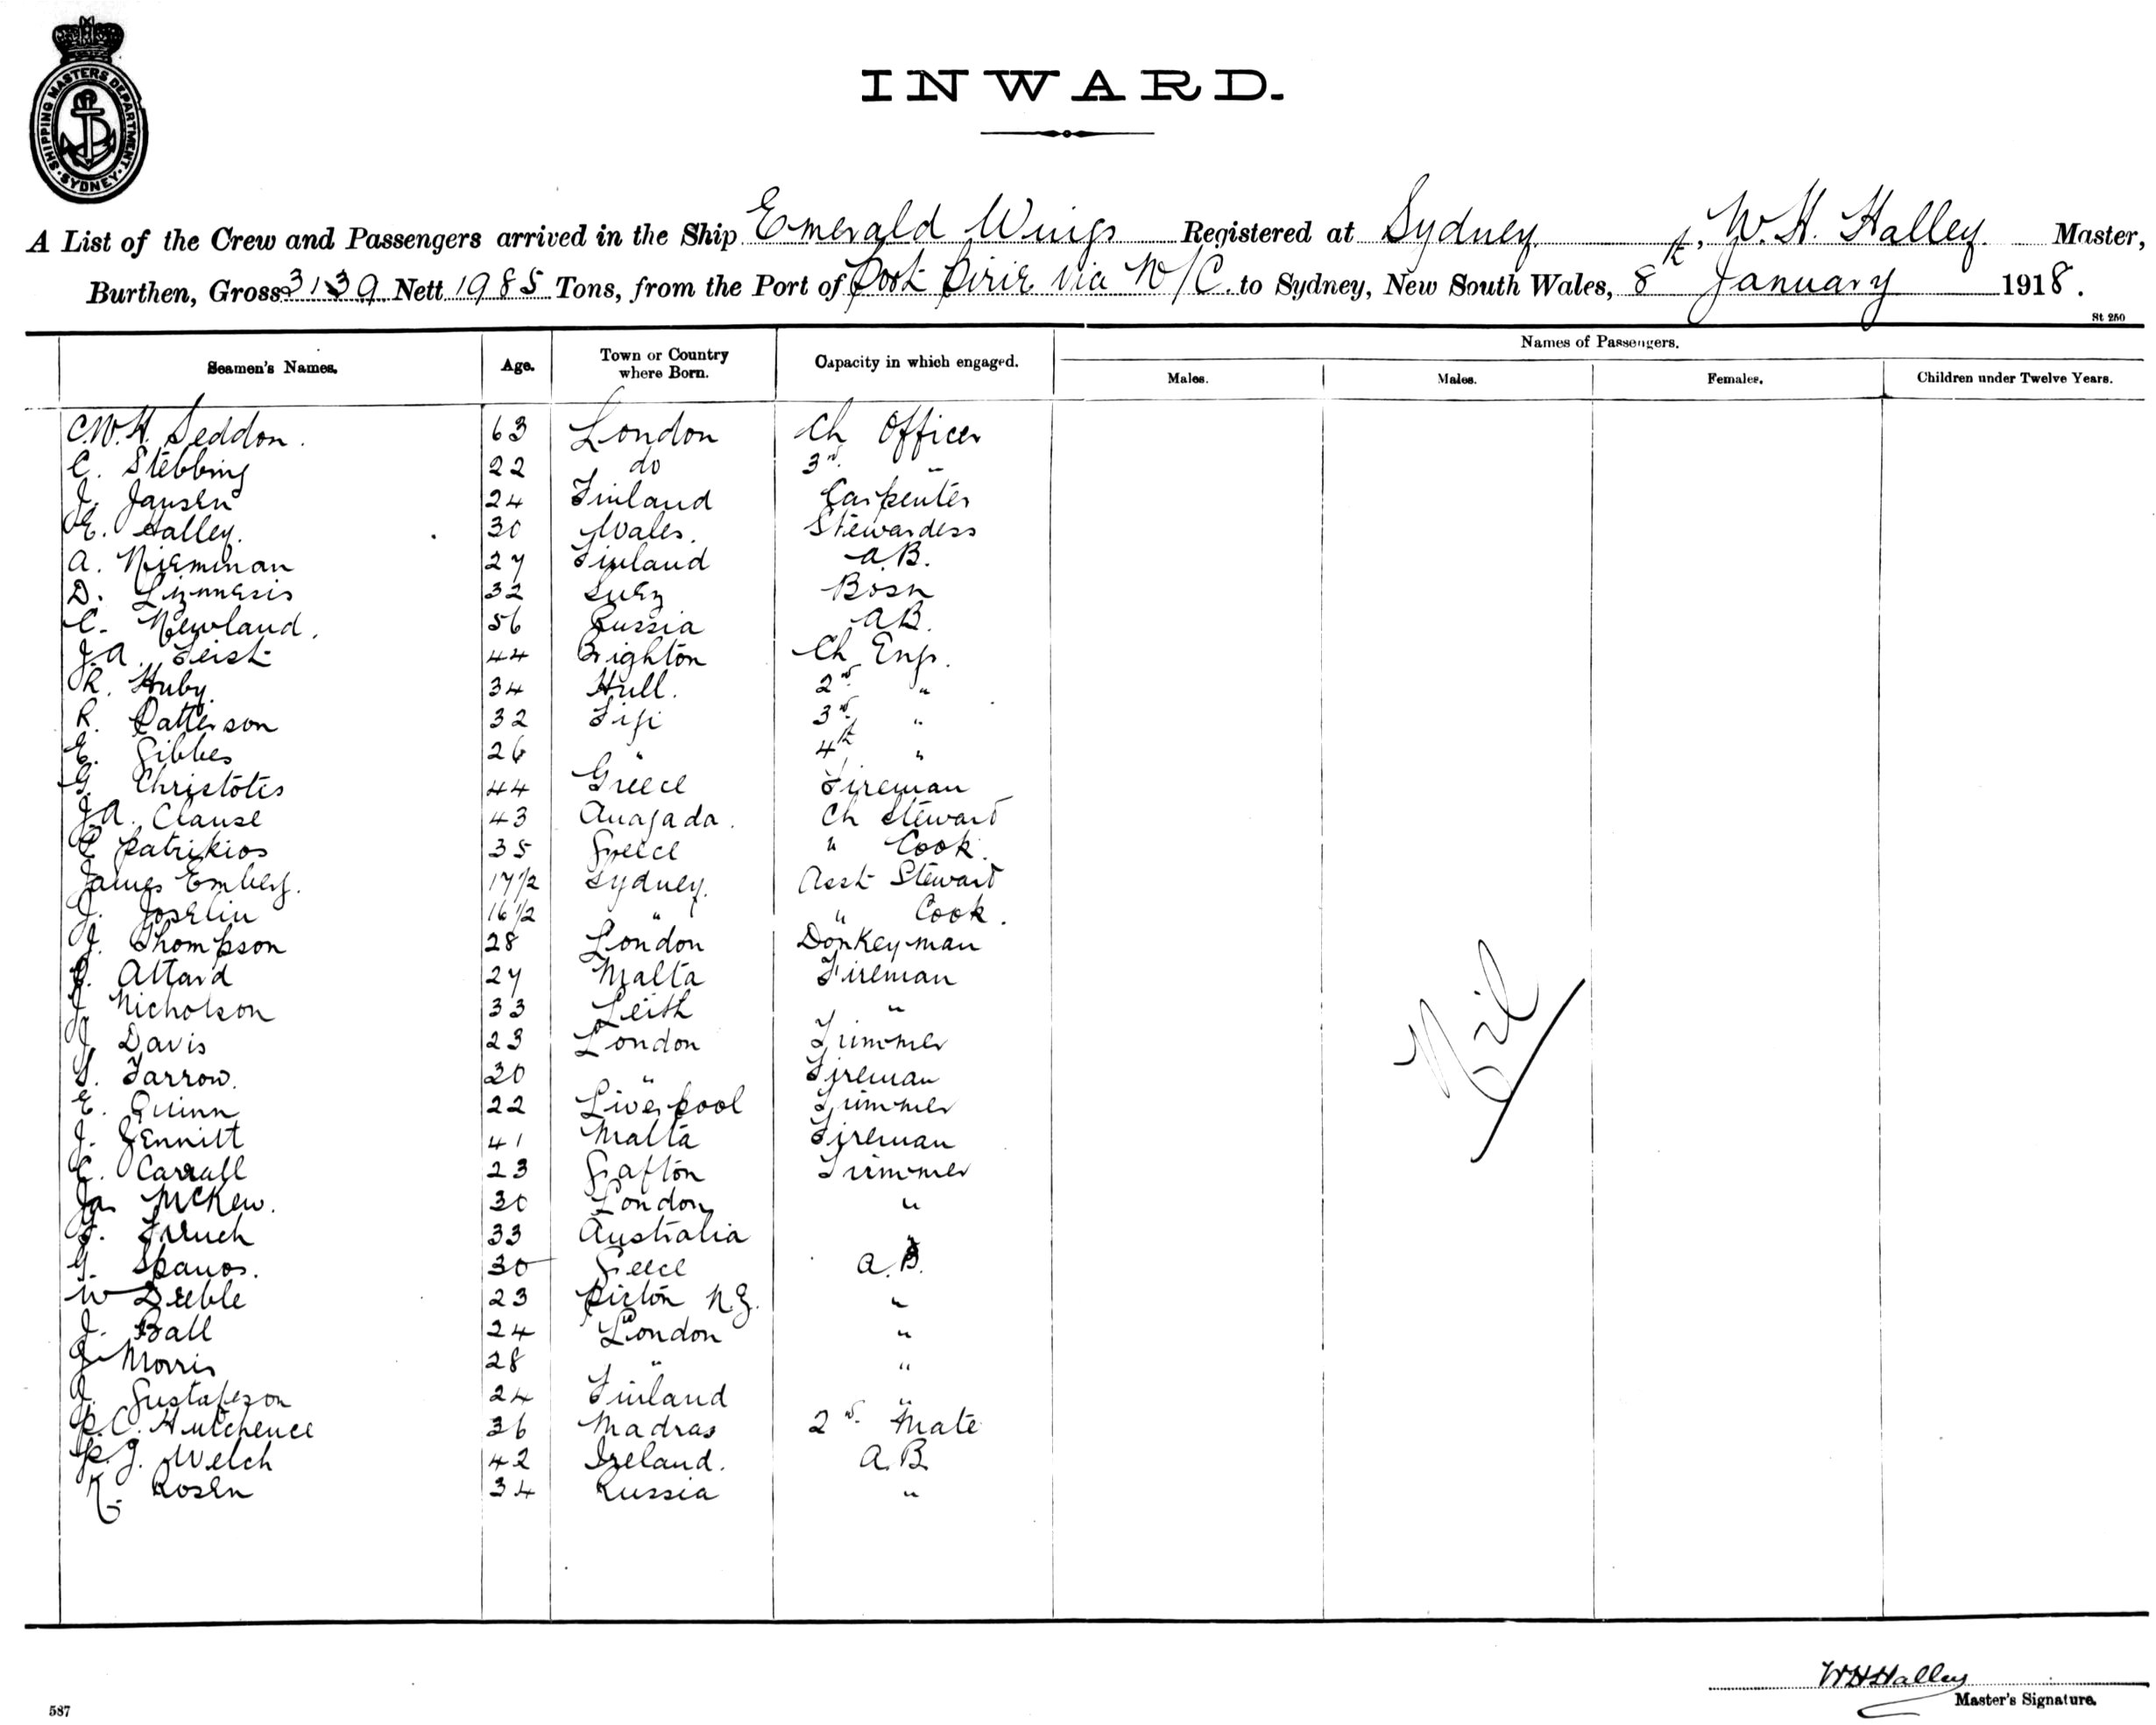 SHIPPING MASTERS DEPARTMENT · SYDNEY ·
INWARD.
A List of the Crew and Passengers arrived in the Ship Emerald Wings Registered at Sydney, W. H. Halley. Master,
Burthen, Gross 3139 Nett 1985 Tons, from the Port of Port Pirie via N/C. to Sydney, New South Wales, 8th January 1918.
St 250
Seamen's Names. Age. Town or Country where Born. Capacity in which engaged. Names of Passengers.
Males. Males. Females. Children under Twelve Years.
C.W.H. Seddon. 63 London Ch Officer
C. Stebbing 22 do 3rd "
J. Jansen 24 Finland Carpenter
E. Halley. 30 Wales. Stewardess
A. Nieminan 27 Finland A.B.
D. 32 Suez Bosn
C. Newland. 56 Russia A.B.
J.A. Feist 44 Brighton Ch Eng.
R. Huby 34 Hull. 2nd "
R. Patterson 32 Fiji 3rd "
E. Gibbes 26 " 4th "
G. Christotis 44 Greece Fireman
J.A. Clause 43 Anagada. Ch Stewart
Patrikios 35 Greece " Cook.
James Emberg. 17 1/2 Sydney. Asst Stewart
J. Joselin 16 1/2 " " Cook.
J. Thompson 28 London Donkeyman
Attard 27 Malta Fireman
J Nicholson 33 Leith "
J. Davis 23 London Trimmer
Farrow. 30 " Fireman
E. Quinn 22 Liverpool Trimmer
J. Zennitt 41 Malta Fireman
C. Carrall 23 Grafton Trimmer
Ja McKew. 30 London "
33 Australia "
G. Spanos. 30 Greece A.B.
W Deeble 23 Picton N.Z. "
J. Ball 24 London "
J Morris 28 " "
J. Gustafson 24 Finland "
P.C. Hutchence 36 Madras 2nd Mate
P.J. Welch 42 Ireland. A.B.
K. Rosen 34 Russia "
Nil
WHHalley
Master's Signature.
587